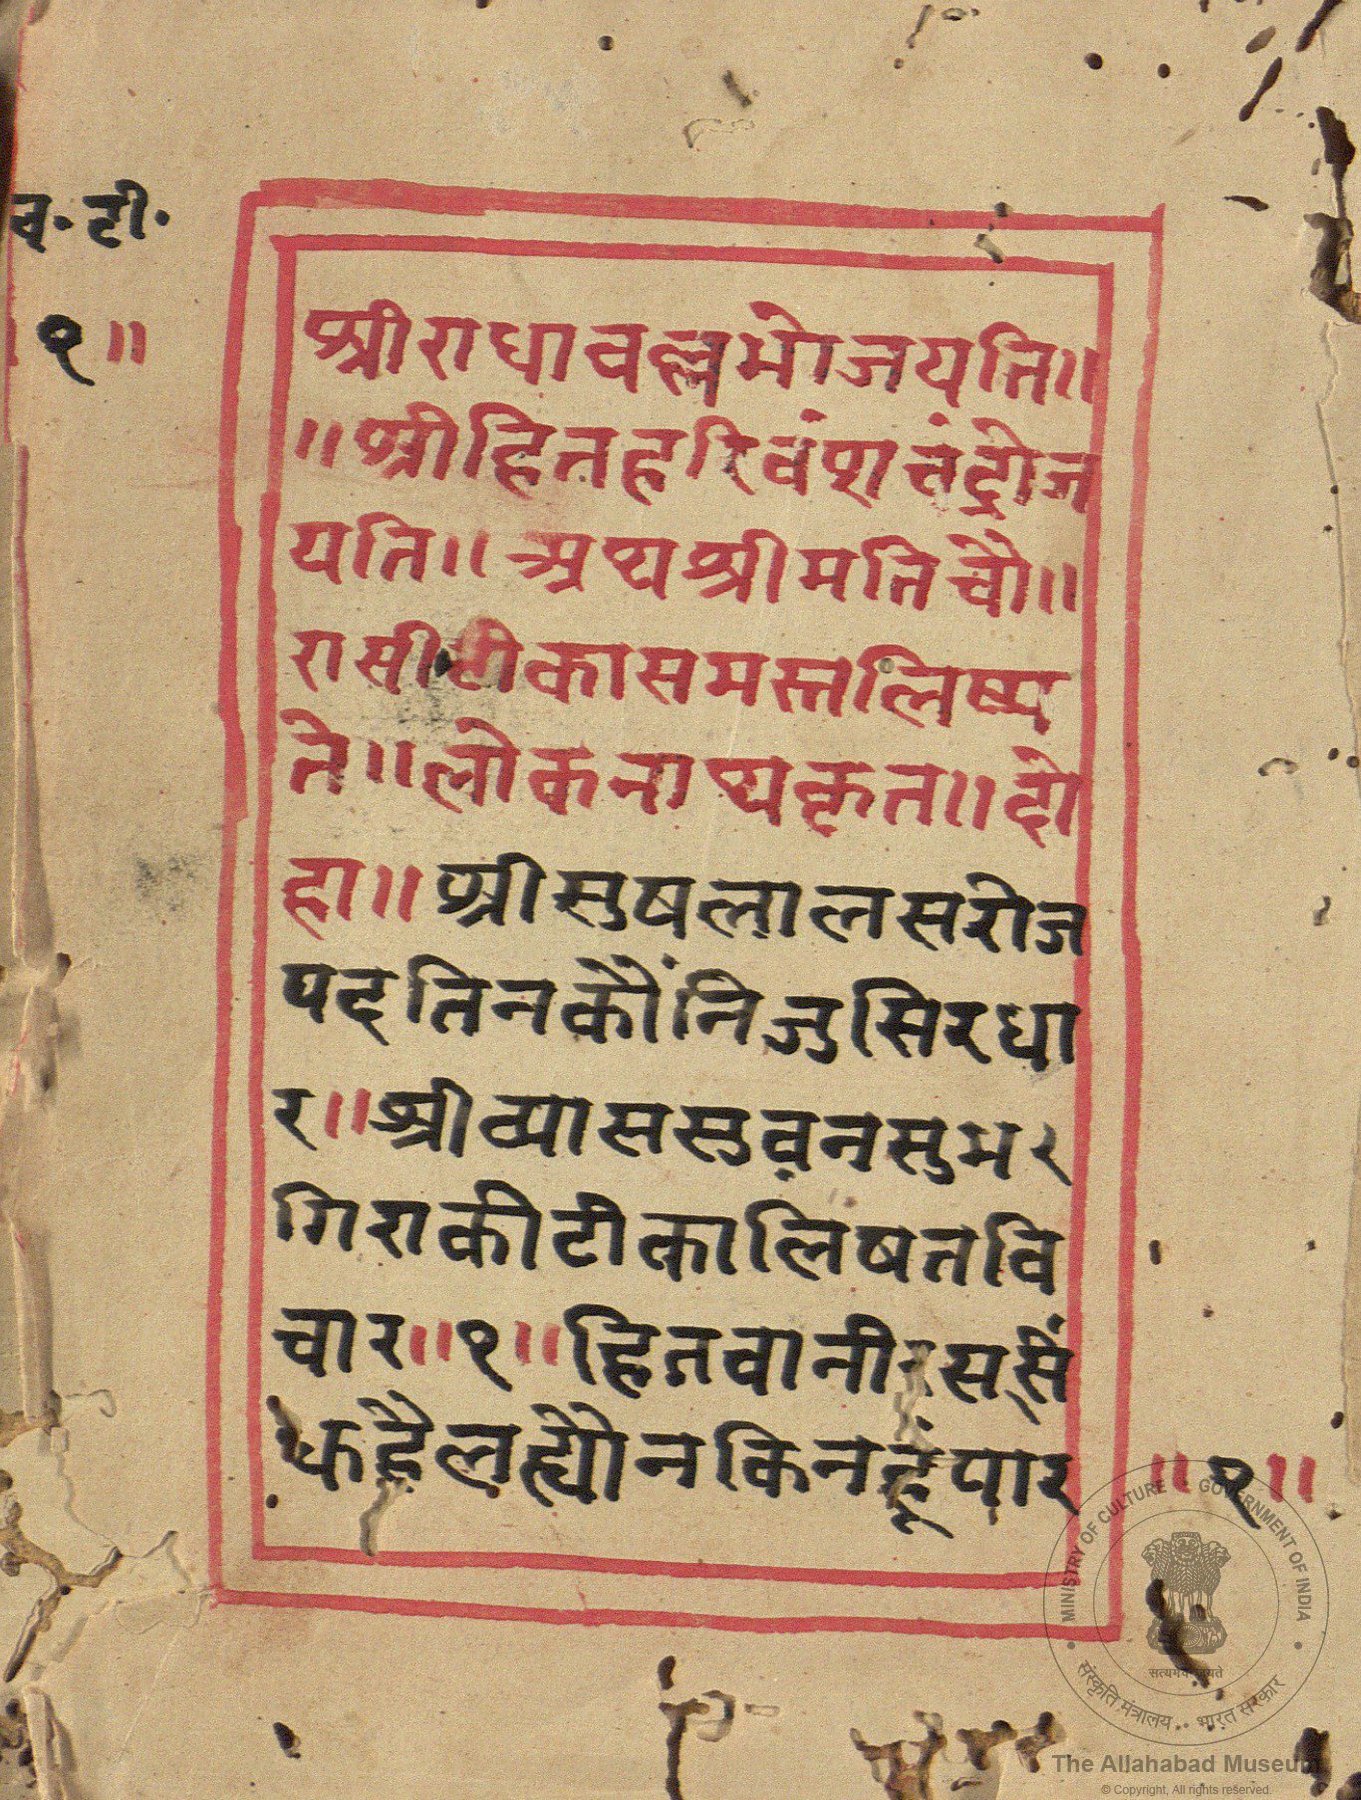 च॰ टी॰
१॥
श्रीराधावल्लभोजयति॥
॥श्रीहितहरिवंशचंद्रोज
यति॥ अथश्रीमतिचौ॥
रासीटीकासमस्तलिष्य
ते॥लोकनाथकृत॥दो
हा॥श्रीसुषलालसरोज
पदतिनकौंनिजुसिरधा
र॥श्रीव्याससुवनसुभर
गिराकीटीकालिषतवि
चार॥१॥हितवानीरससिं
कहैलह्यौनकिनहूंपार
॥१॥
MINISTRY OF CULTURE GOVERNMENT OF INDIA
सत्यमेव जयते
संस्कृति मंत्रालय भारत सरकार
The Allahabad Museum
© Copyright, All rights reserved.